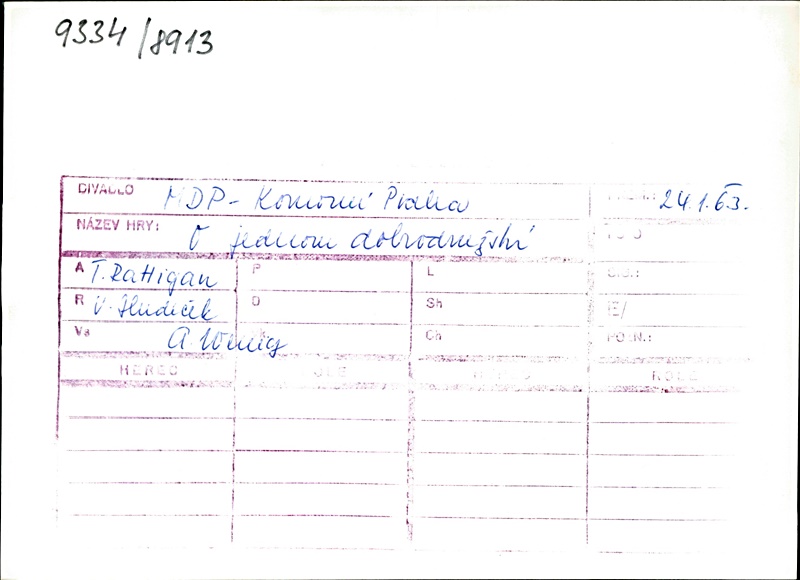 9334/8913
DIVADLO MDP - Komorní Praha 24.1.63.
NÁZEV HRY: O jednom dobrodružství FOTO
A T. Rattigan P L Č.S.:
R V. Hudeček D Sh IE/
Vs A. Wenig Ch PO.N.:
HEREC ROLE HEREC ROLE